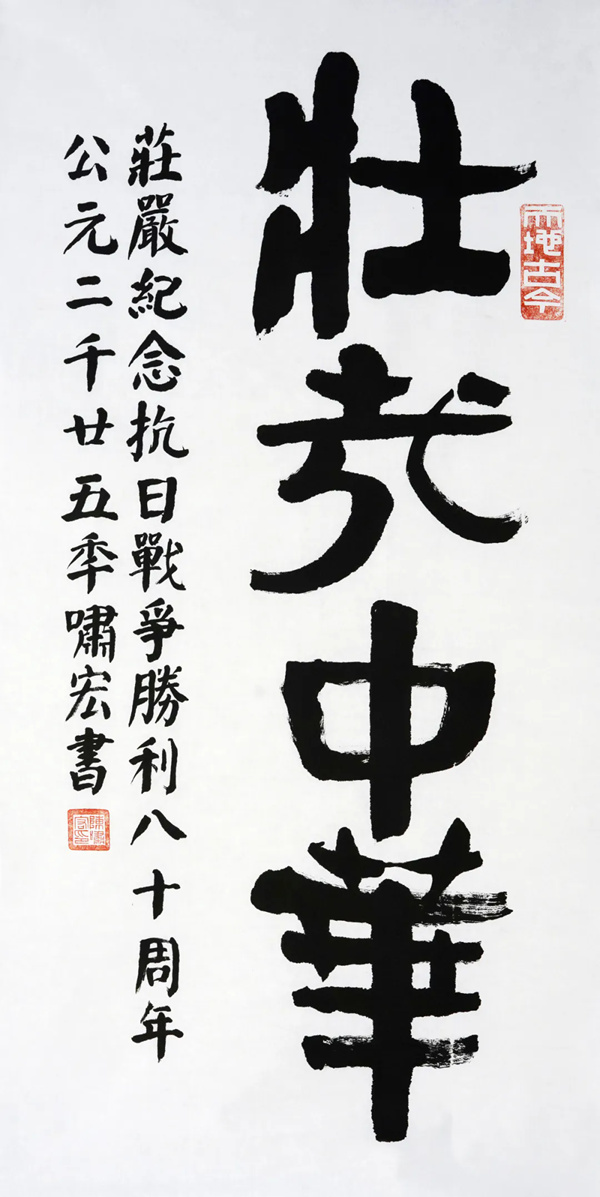 天地古今
壯哉中華
莊嚴紀念抗日戰爭勝利八十周年
公元二千廿五秊嘯宏書
陳嘯宏印